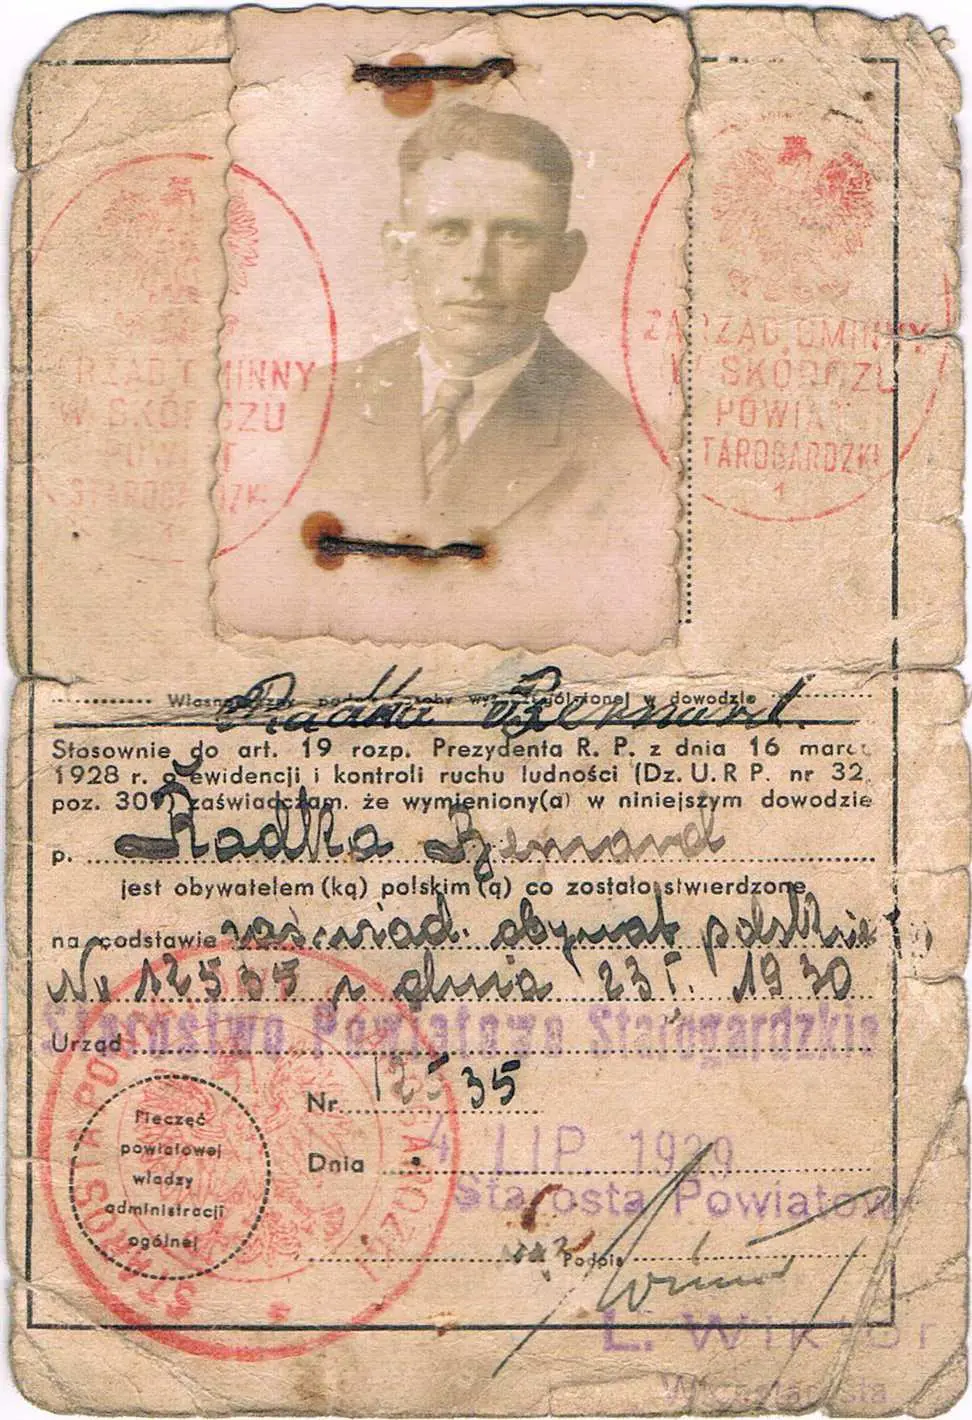 ZARZĄD GMINNY
W SKÓRCZU
POWIAT
STAROGARDZKI
1
ZARZĄD GMINNY
W SKÓRCZU
POWIAT
STAROGARDZKI
1
Własnoręczny podpis osoby wyszczególnionej w dowodzie
Radka Bernard.
Stosownie do art. 19 rozp. Prezydenta R. P. z dnia 16 marca
1928 r. o ewidencji i kontroli ruchu ludności (Dz. U. R P. nr 32,
poz. 309) zaświadczam, że wymieniony(a) w niniejszym dowodzie
p. Radka Bernard
jest obywatelem (ką) polskim (ą) co zostało stwierdzone
na podstawie zaświad. obywat. polskie
Nr 12535 z dnia 1930
Starostwo Powiatowe Starogardzkie
Urząd
Nr. 12535
Pieczęć
powiatowej
władzy
administracji
ogólnej
Dnia 4 LIP. 1939
Starosta Powiatow
Podpis
L. W
Wicestarosta